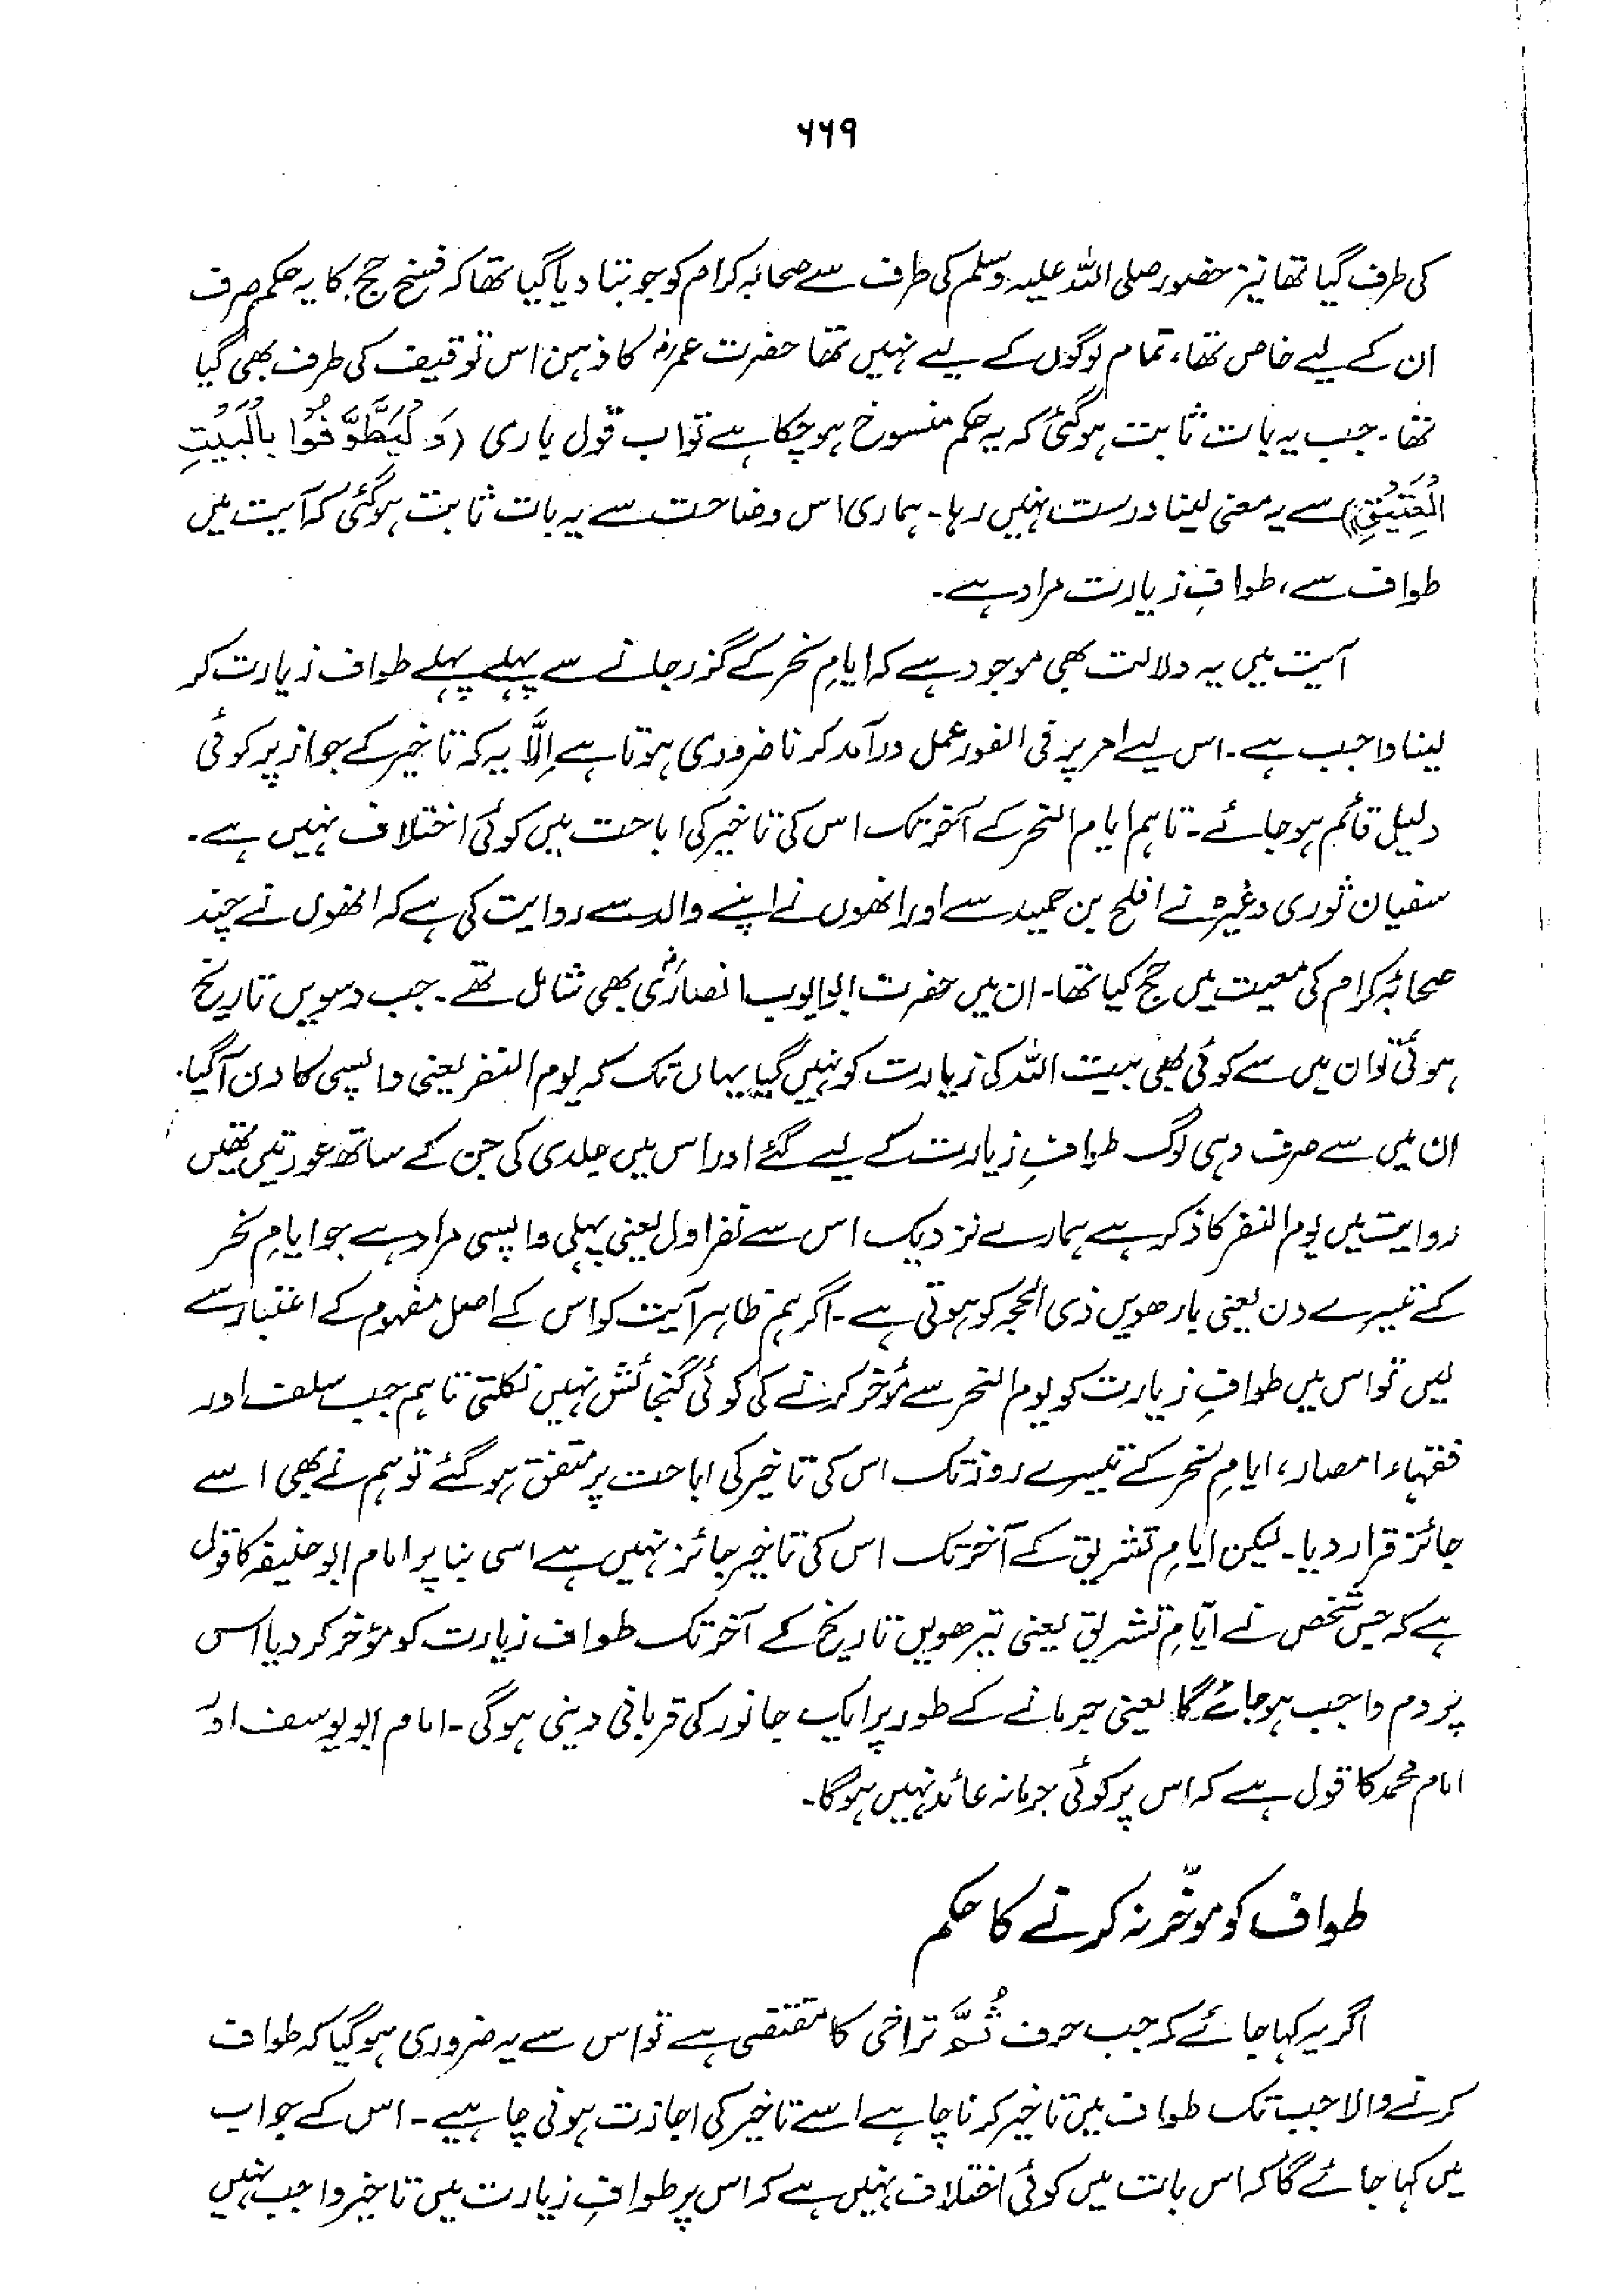 ۶۶۹
کی طرف گیا تھا نیز حضور صلی اللہ علیہ وسلم کی طرف سے صحابہ کرام کو جو بتا دیا گیا تھا کہ فسخ حج کا یہ حکم صرف
ان کے لیے خاص تھا، تمام لوگوں کے لیے نہیں تھا حضرت عمرؓ کا ذہن اس توقیف کی طرف بھی گیا
تھا۔ جب یہ بات ثابت ہوگئی کہ یہ حکم منسوخ ہوچکا ہے تو اب قول باری (وَلْيَطَّوَّفُوْا بِالْبَيْتِ
الْعَتِيْقِ) سے یہ معنی لینا درست نہیں رہا۔ ہماری اس وضاحت سے یہ بات ثابت ہوگئی کہ آیت میں
طواف سے، طوافِ زیارت مراد ہے۔
آیت میں یہ دلالت بھی موجود ہے کہ ایامِ نحر کے گزر جانے سے پہلے پہلے طواف زیارت کر
لینا واجب ہے۔ اس لیے امر پر فی الفور عمل درآمد کرنا ضروری ہوتا ہے اِلَّا یہ کہ تاخیر کے جواز پر کوئی
دلیل قائم ہوجائے۔ تاہم ایام النحر کے آخر تک اس کی تاخیر کی اباحت میں کوئی اختلاف نہیں ہے۔
سفیان ثوری وغیرہ نے افلح بن حمید سے اور انھوں نے اپنے والد سے روایت کی ہے کہ انھوں نے چند
صحابہ کرام کی معیت میں حج کیا تھا۔ ان میں حضرت ابو ایوب انصاریؓ بھی شامل تھے۔ جب دسویں تاریخ
ہوئی تو ان میں سے کوئی بھی بیت اللہ کی زیارت کو نہیں گیا یہاں تک کہ یوم النفر یعنی واپسی کا دن آگیا۔
ان میں سے صرف وہی لوگ طوافِ زیارت کے لیے گئے اور اس میں جلدی کی جن کے ساتھ عورتیں تھیں
روایت میں یوم النفر کا ذکر ہے ہمارے نزدیک اس سے نفر اول یعنی پہلی واپسی مراد ہے جو ایامِ نحر
کے تیسرے دن یعنی بارھویں ذی الحجہ کو ہوتی ہے۔ اگر ہم ظاہر آیت کو اس کے اصل مفہوم کے اعتبار سے
لیں تو اس میں طوافِ زیارت کو یوم النحر سے مؤخر کرنے کی کوئی گنجائش نہیں نکلتی تاہم جب سلف اور
فقہاء امصار، ایامِ نحر کے تیسرے روز تک اس کی تاخیر کی اباحت پر متفق ہوگئے تو ہم نے بھی اسے
جائز قرار دیا۔ لیکن ایامِ تشریق کے آخر تک اس کی تاخیر جائز نہیں ہے اسی بنا پر امام ابو حنیفہ کا قول
ہے کہ جس شخص نے ایّامِ تشریق یعنی تیرھویں تاریخ کے آخر تک طواف زیارت کو مؤخر کر دیا اس
پر دم واجب ہوجائے گا یعنی جرمانے کے طور پر ایک جانور کی قربانی دینی ہوگی۔ امام ابو یوسف اور
امام محمد کا قول ہے کہ اس پر کوئی جرمانہ عائد نہیں ہوگا۔
طواف کو موخّر نہ کرنے کا حکم
اگر یہ کہا جائے کہ جب حرف ثُمَّ تراخی کا مقتضی ہے تو اس سے یہ ضروری ہوگیا کہ طواف
کرنے والا جب تک طواف میں تاخیر کرنا چاہے اسے تاخیر کی اجازت ہونی چاہیے۔ اس کے جواب
میں کہا جائے گا کہ اس بات میں کوئی اختلاف نہیں ہے کہ اس پر طوافِ زیارت میں تاخیر واجب نہیں